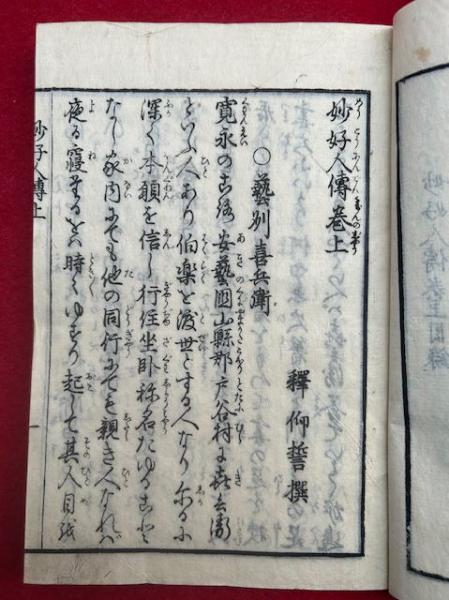 妙好人傳巻上
釋仰誓撰
○藝州喜兵衛
寛永のころ安藝國山縣郡戸谷村に喜兵衛
といふ人あり伯樂を渡世とする人なり尓るに
深く本願を信し行住坐臥称名たゆること
なし家内にても他の同行にても親き人なれバ
夜る寝てをるを時々ゆすり起して其人目を
妙好人傳上